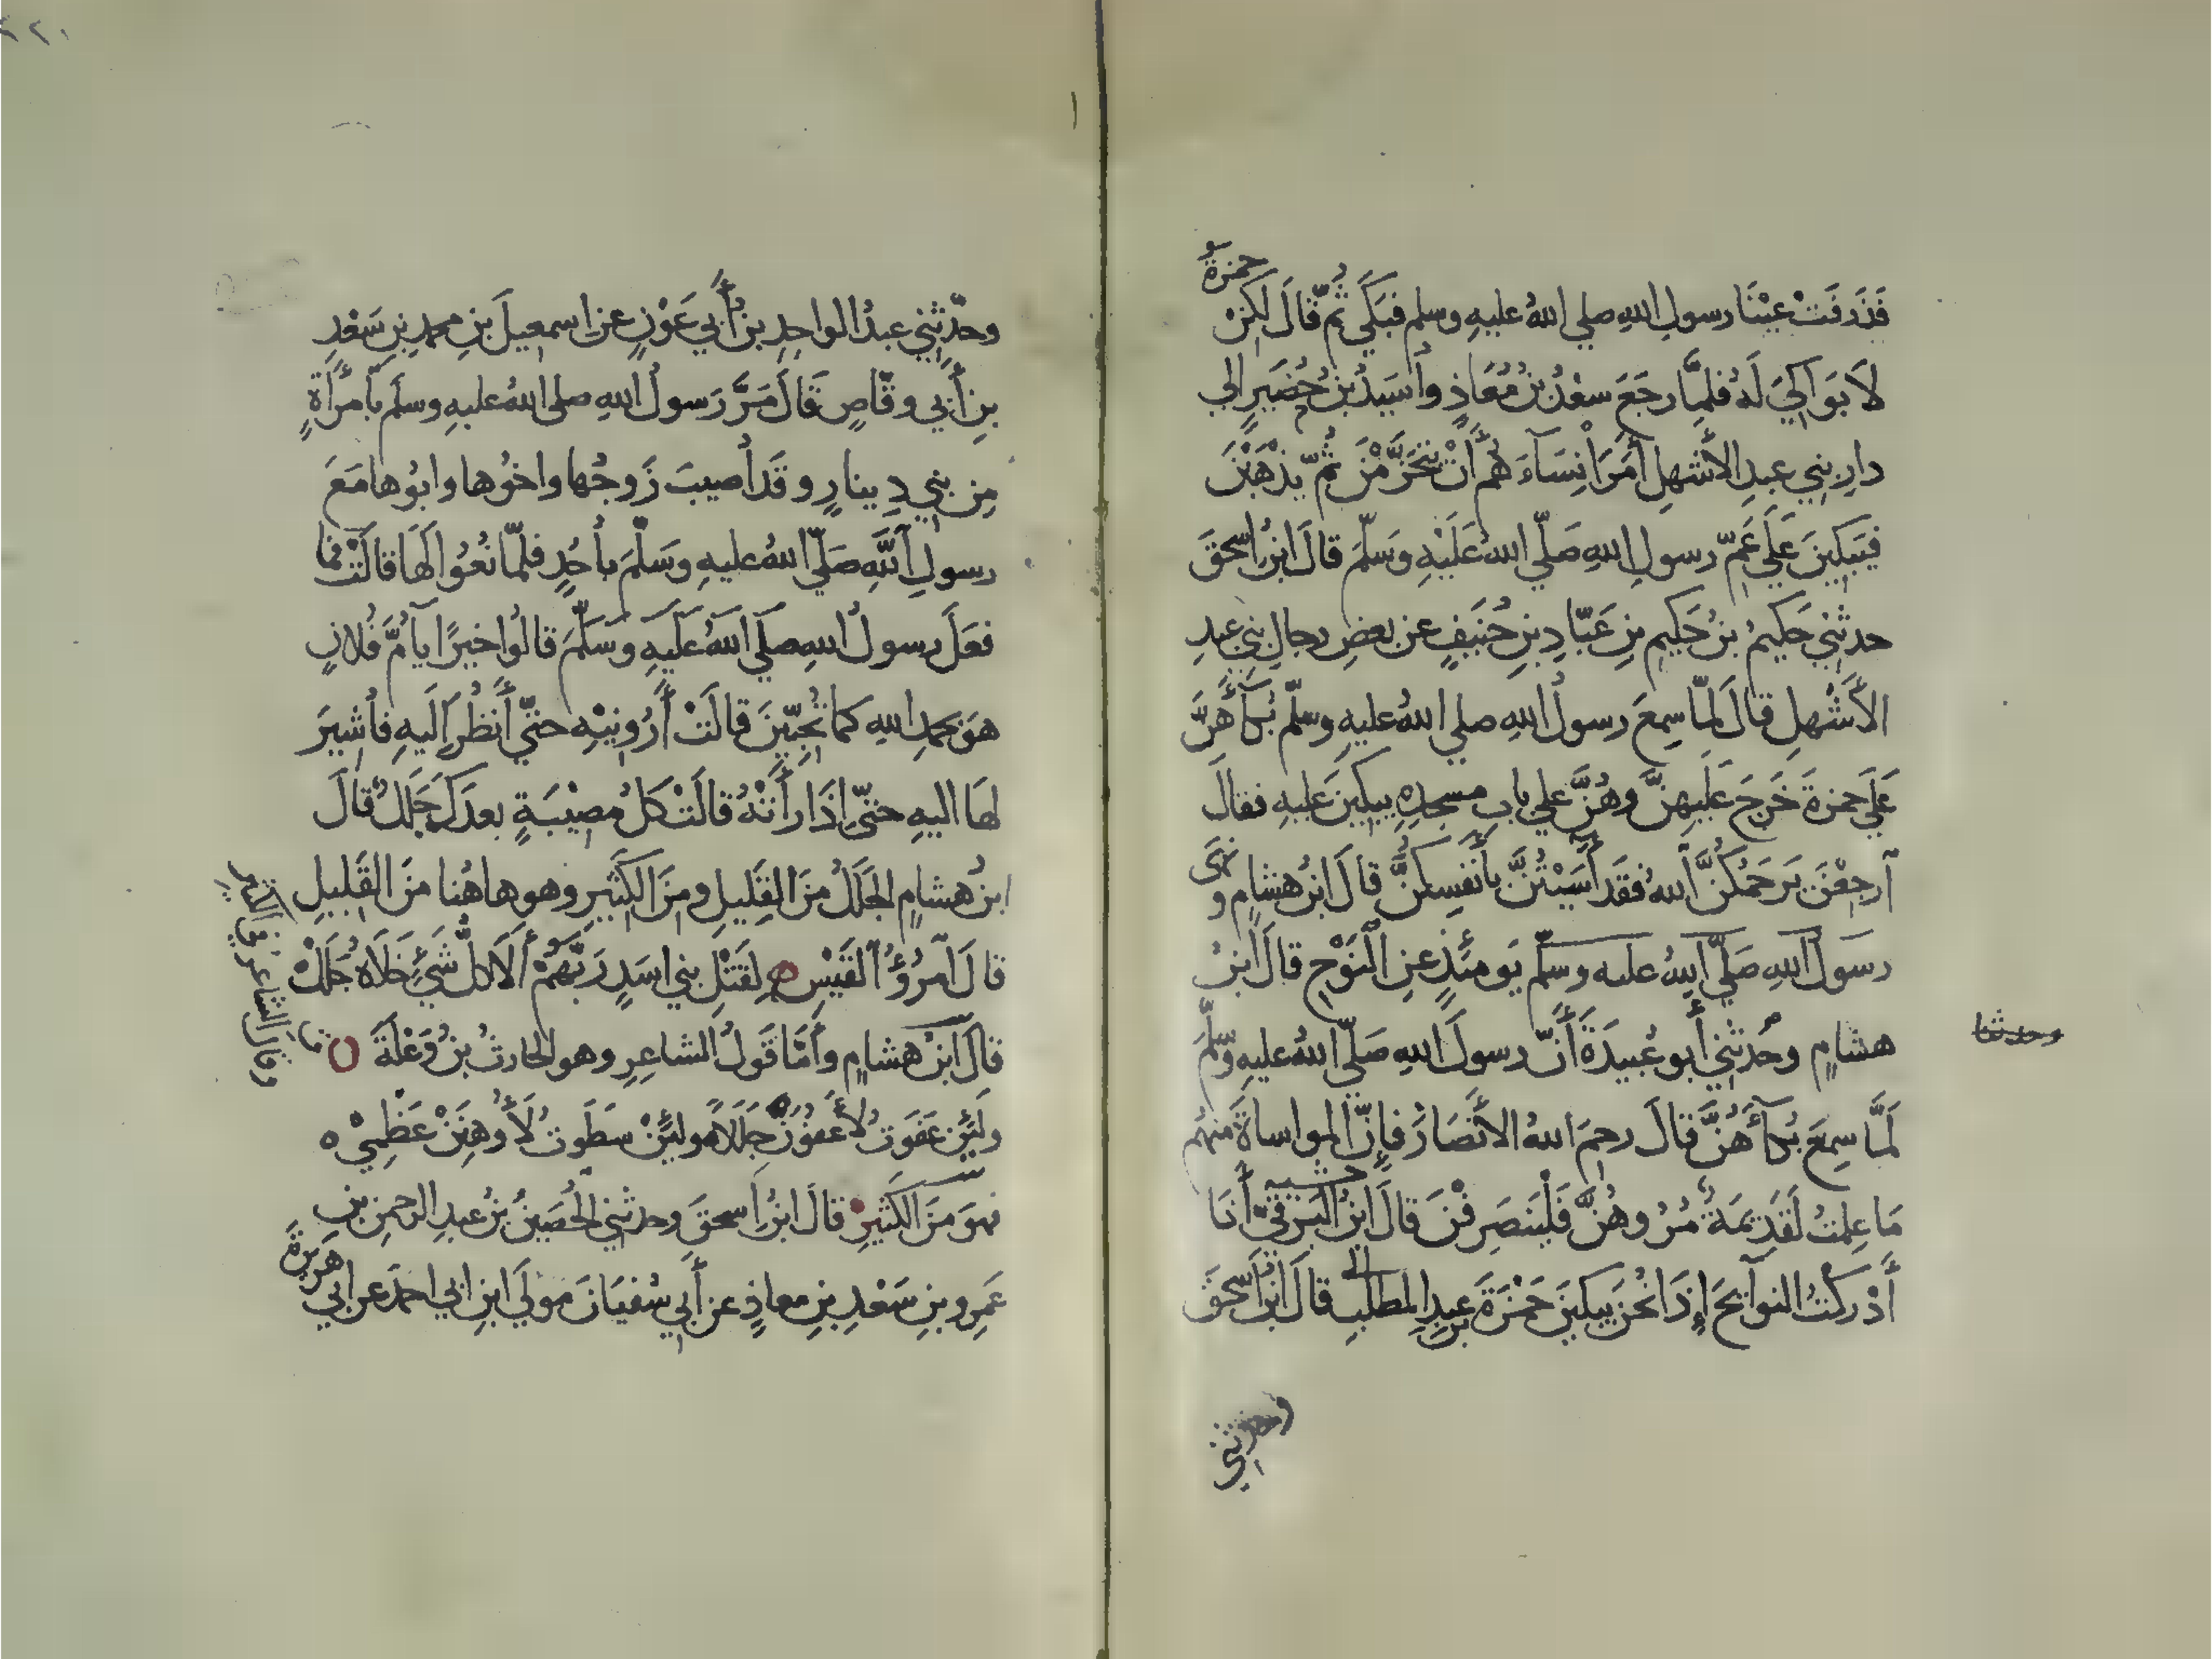 فَذَرَفَتْ عَيْنَا رسولِ اللهِ صلي اللهُ عليهِ وسلم فبَكَي ثُمّ قالَ لكِنْ حمزةُ
لاَ بَوَاكِيَ لَهُ فلمَّا رجَعَ سعْدُ بنُ مُعَاذٍ وأُسَيدُ بنُ حُضَيرٍ الي
دارِ بني عبدِ الأَشهلِ أَمَرَا نِسَآءَهُم أَنْ يَتَحَزَّمْنَ ثُمّ يذْهَبْنَ
فيَبكينَ عَلَي عَمِّ رسولِ اللهِ صَلّي اللهُ عَلَيْهِ وَسَلّمَ قالَ ابنُ اسحقَ
حدثني حَكيمُ بنُ حَكيمِ بنِ عَبّادِ بنِ حُنَيفٍ عن بعضِ رجالِ بني عبدِ
الأَشْهلِ قالَ لمّا سمِعَ رسولُ اللهِ صلي اللهُ عليهِ وسلّم بُكآءَهُنَّ
عَلَي حمزةَ خَرجَ عَلَيهِنَّ وهُنَّ علي بابِ مسجدِهِ يبكينَ عليهِ فقالَ
آرجِعْنَ يَرحَمُكُنَّ آللهُ فقَد آسَيْتُنَّ بأَنفسِكُنَّ قالَ ابنُ هشامٍ و نَهَى
رسولُ اللهِ صَلّي اللهُ عليه وسلّم يَومئذٍ عنِ النَّوْحِ قالَ ابنُ
هشامٍ وحُدثني أَبو عُبيدَةَ أَنّ رسولَ اللهِ صَلّي اللهُ عليهِ وسلّمَ
وحدثنا
لَمَّا سمِعَ بُكآءَهُنَّ قالَ رحِمَ اللهُ الأَنْصَارَ فإِنّ المواساةَ منهُم
مَا عِلمتُ لَقَدِيمَةٌ مُرُوهُنَّ فَلْيَنصَرِفْنَ قالَ ابنُ البَرقيّ أَنَا
أَدْركْتُ النوآئحَ إِذَا نُحْنَ يبكينَ حَمْزَةَ بن عبدِ المطلبِ قالَ ابنُ اسحقَ
وحدثني
وحدّثني عبدُ الواحِدِ بنُ أَبي عَوْنٍ عن اسمعيلَ بنِ محمدِ بنِ سَعْدِ
بنِ أَبي وقّاصٍ قالَ مَرَّ رَسولُ اللهِ صلي اللهُ عليهِ وسلّم بآمرأَةٍ
مِن بني دِينارٍ وقَد أُصيبَ زَوجُها واخُوها وابُوها مَعَ
رسولِ آللَّهِ صَلّي اللهُ عليهِ وَسَلّمَ بأُحُدٍ فلمّا نُعُوا لَهَا قالَتْ فما
فعَلَ رسولُ اللهِ صلَي اللهُ عَلَيهِ وَسَلّمَ قالُوا خيرًا يآ أُمَّ فُلانٍ
هوَ بحمدِ اللهِ كما تُحِبّينَ قالَتْ أَرُونِيْهِ حتّي أَنظُرَ إِلَيهِ فأُشِيرَ
لهَا اليهِ حتّي إِذَا رأَتْهُ قالَتْ كلُ مُصِيْبَةٍ بعدَكَ جَلَلٌ قالَ
ابنُ هشامٍ الجَلَلُ مِنَ القَلِيلِ ومِنَ الكَثيرِ وهو هاهُنا منَ القَليلِ
قالَ آمرُؤُ القَيْسِ لِقَتْلِ بني اسَدٍ رَبَّهُمْ أَلاَ كلُّ شَيْءٍ خَلاَهُ جَلَلْ
قالَ ابنُ هشامٍ وأَمَّا قَولُ الشاعِرِ وهو الحارثُ بنُ وَعْلَةَ
ولَئِن عفَوتُ لأَعفُوَنْ جلَلاً ولئِنْ سَطَوتُ لأُوهِنَنْ عَظْمِيْ
فهوَ منَ الكَثيرِ قالَ ابنُ اسحقَ وحدثني الحُصَينُ بنُ عبدِ الرحمنِ بنِ
عَمرِو بنِ سَعْدِ بنِ معاذٍ عن أَبي سُفيَانَ مَولَي ابنِ ابي احمَدَ عن ابي هُريرةَ